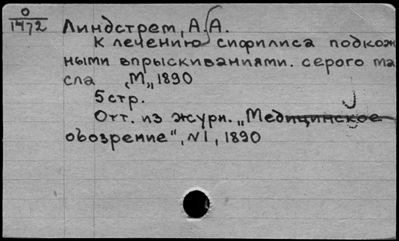 0
1472
Линдстрем, А.А.
К лечению сифилиса подкож
ными впрыскиваниями. серого ма
сла „М", 1890
5 стр.
Отт. из журн. „Медицинское
обозрение", №1, 1890